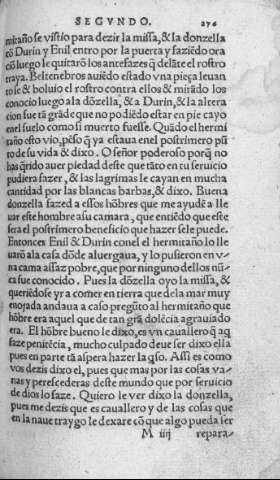 SEGVNDO. 276
mitaño se vistio para dezir la missa, & la donzella
cō Durin y Enil entro por la puerta y faziēdo ora
ciō luego le quitarō los antefazes q̄ delāte el rostro
traya. Beltenebros auiēdo estado vna pieça leuan
to se & boluio el rostro contra ellos & mirādo los
conocio luego ala dōzella, & a Durin, & la altera
cion fue tā grāde que no podiēdo estar en pie cayo
enel suelo como si muerto fuesse. Quādo el hermi
taño esto vio, pēso q̄ ya estaua enel postrimero pū
to de su vida & dixo. O señor poderoso porq̄ no
has q̄rido auer piedad deste que tāto en tu seruicio
pudiera fazer, & las lagrimas le cayan en mucha
cantidad por las blancas barbas, & dixo. Buena
donzella fazed a essos hōbres que me ayudē a lle
uar este hombre asu camara, que entiēdo que este
sera el postrimero beneficio que hazer sele puede.
Entonces Enil & Durin conel el hermitaño lo lle
uarō ala casa dōde aluergaua, y lo pusieron en v‑
na cama assaz pobre, que por ninguno dellos nū‑
ca fue conocido. Pues la dōzella oyo la missa, &
queriēdose yr a comer en tierra que dela mar muy
enojada andaua a caso pregūto al hermitaño que
hōbre era aquel que de tan grā dolēcia agrauiado
era. El hōbre bueno le dixo, es vn cauallero q̄ aq̄
faze penitēcia, mucho culpado deue ser dixo ella
pues en parte tā aspera hazer la q̄so. Assi es como
vos dezis dixo el, pues que mas por las cosas va‑
nas y perescederas deste mundo que por seruicio
de dios lo faze. Quiero le ver dixo la donzella,
pues me dezis que es cauallero y de las cosas que
en la naue traygo le dexare cō que algo pueda ser
M iiij repara‑